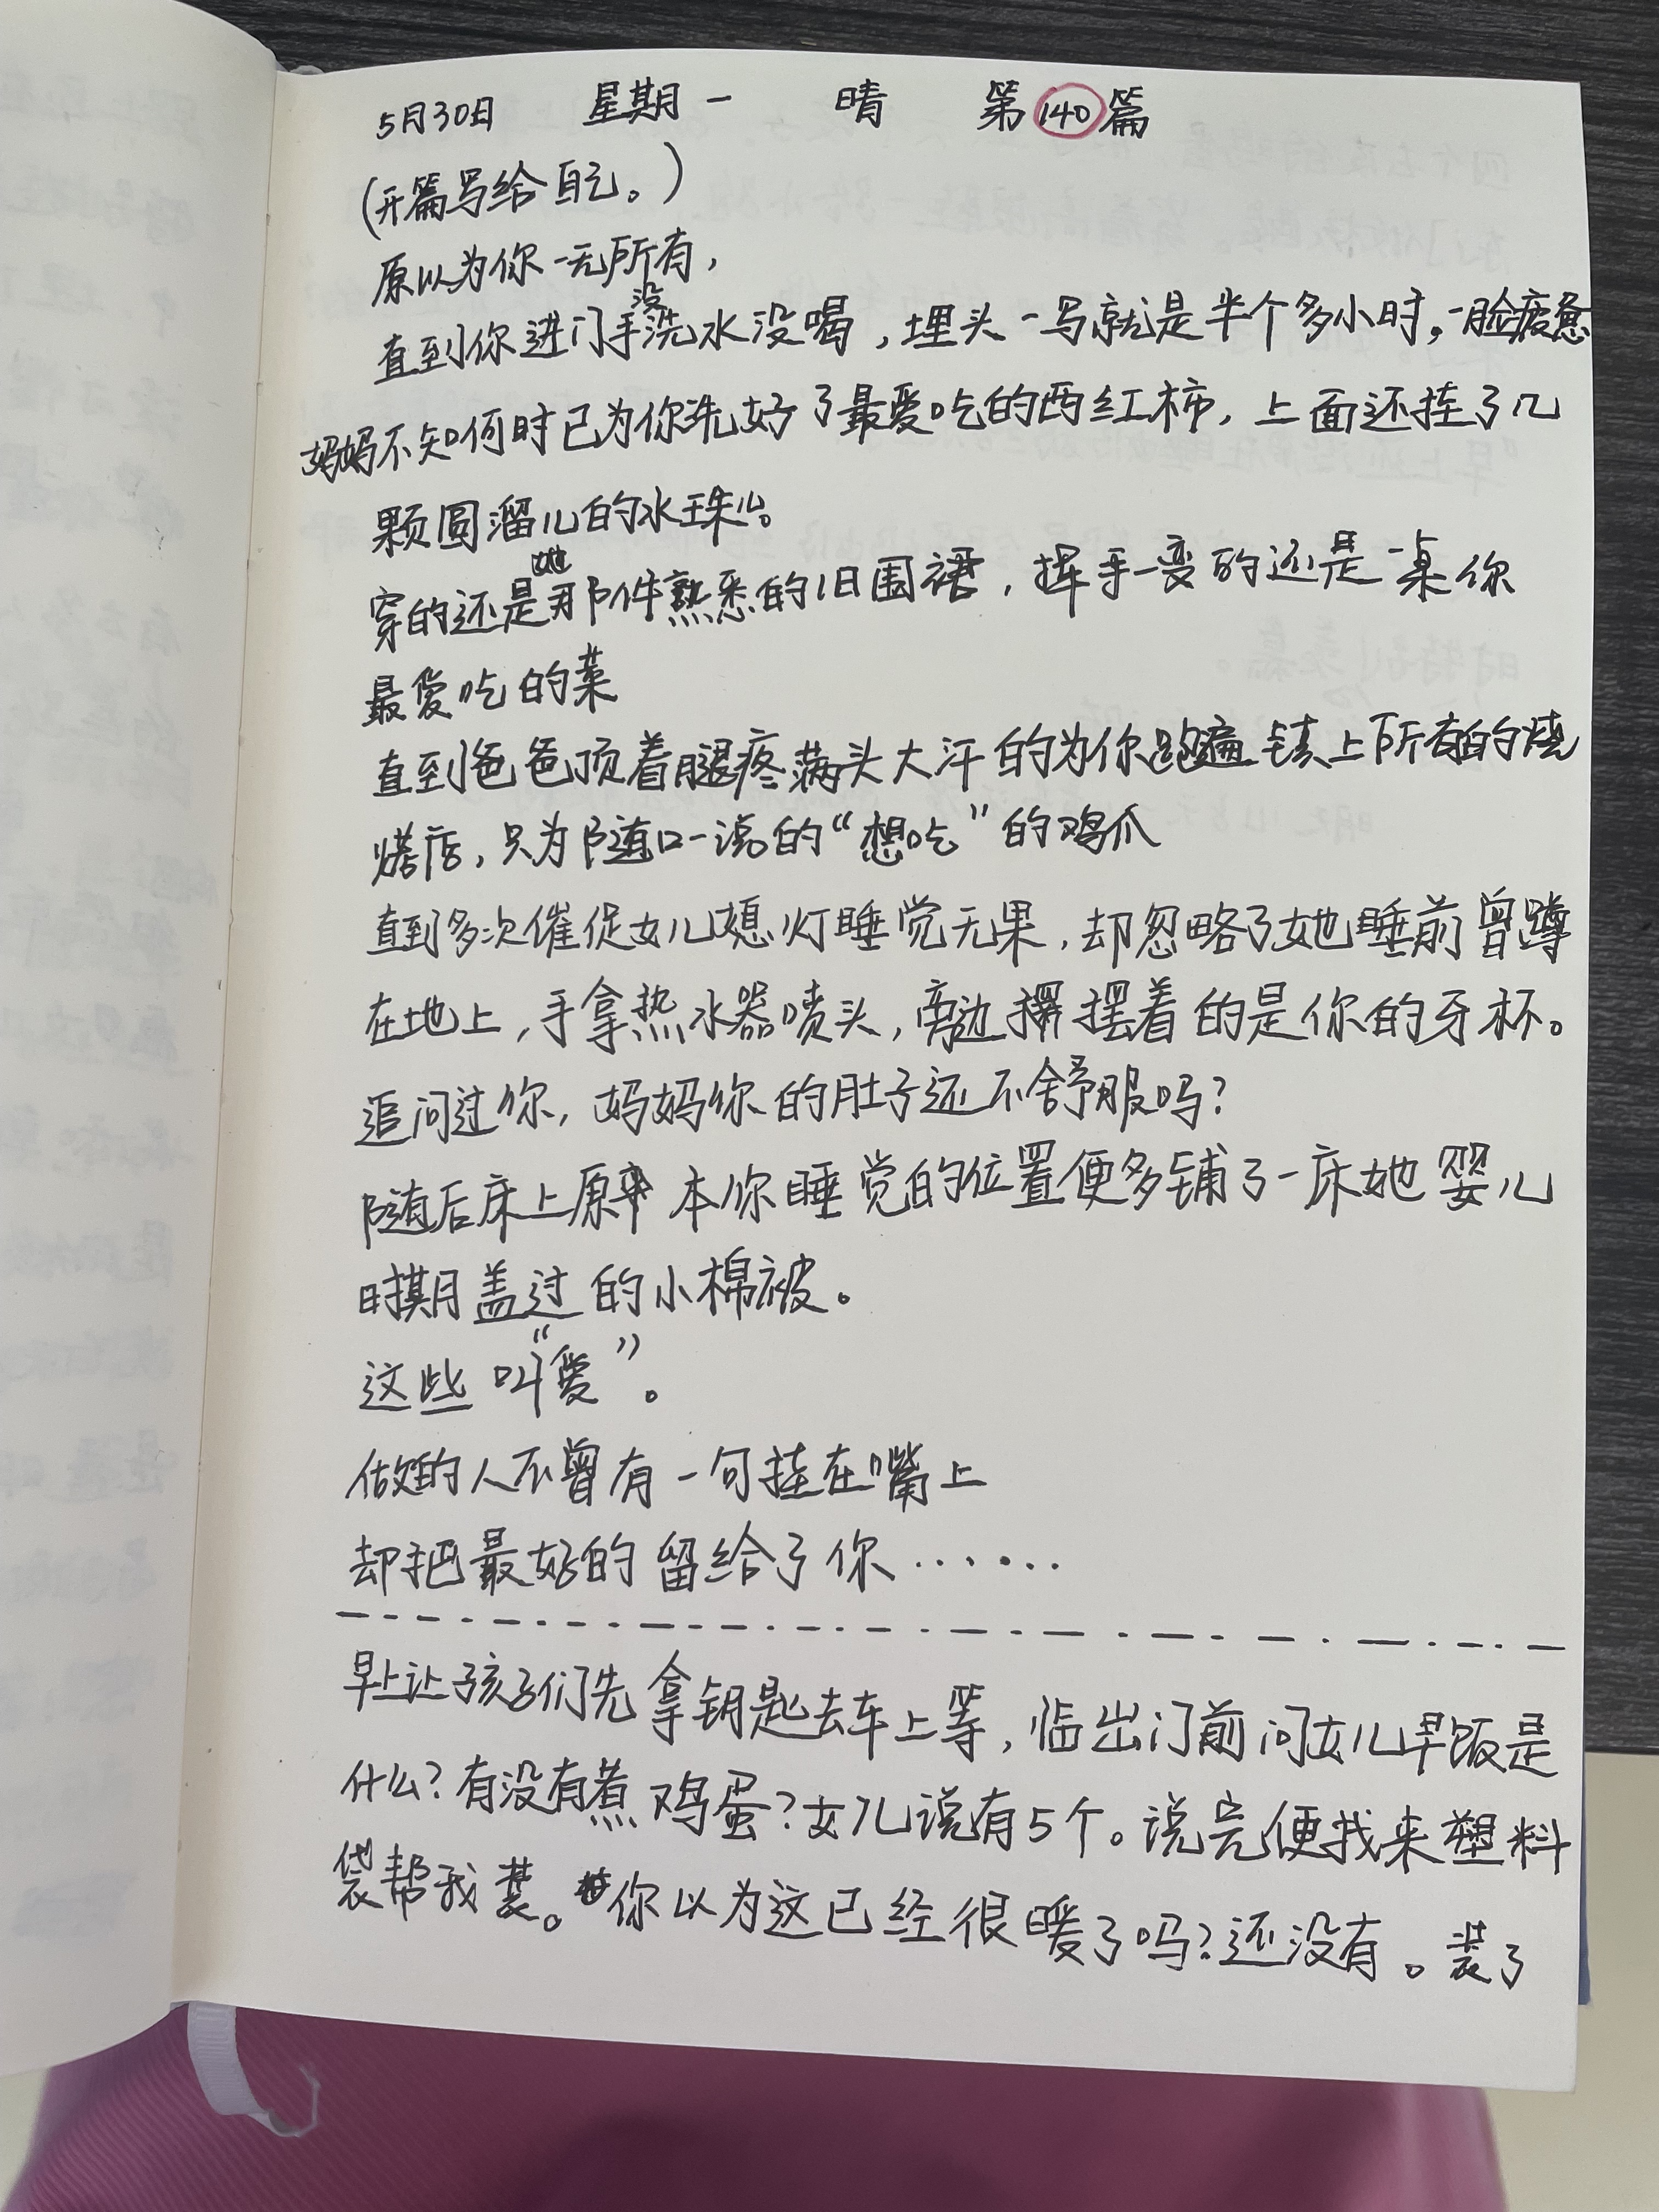 5月30日 星期一 晴 第140篇
(开篇写给自己。)
原以为你一无所有,
直到你进门手没洗水没喝,埋头一写就是半个多小时。一脸疲惫
妈妈不知何时已为你洗好了最爱吃的西红柿,上面还挂了几
颗圆溜儿的水珠儿。
穿的还是她那件熟悉的旧围裙,挥手一变的还是一桌你
最爱吃的菜
直到爸爸顶着腿疼满头大汗的为你跑遍镇上所有的烧
烤店,只为随口一说的“想吃”的鸡爪
直到多次催促女儿熄灯睡觉无果,却忽略了她睡前曾蹲
在地上,手拿热水器喷头,旁边摆着的是你的牙杯。
追问过你,妈妈你的肚子还不舒服吗?
随后床上原本你睡觉的位置便多铺了一床她婴儿
时期盖过的小棉被。
这些叫“爱”。
做的人不曾有一句挂在嘴上
却把最好的留给了你……
早上让孩子们先拿钥匙去车上等,临出门前问女儿早饭是
什么?有没有煮鸡蛋?女儿说有5个。说完便找来塑料
袋帮我装。你以为这已经很暖了吗?还没有。装了